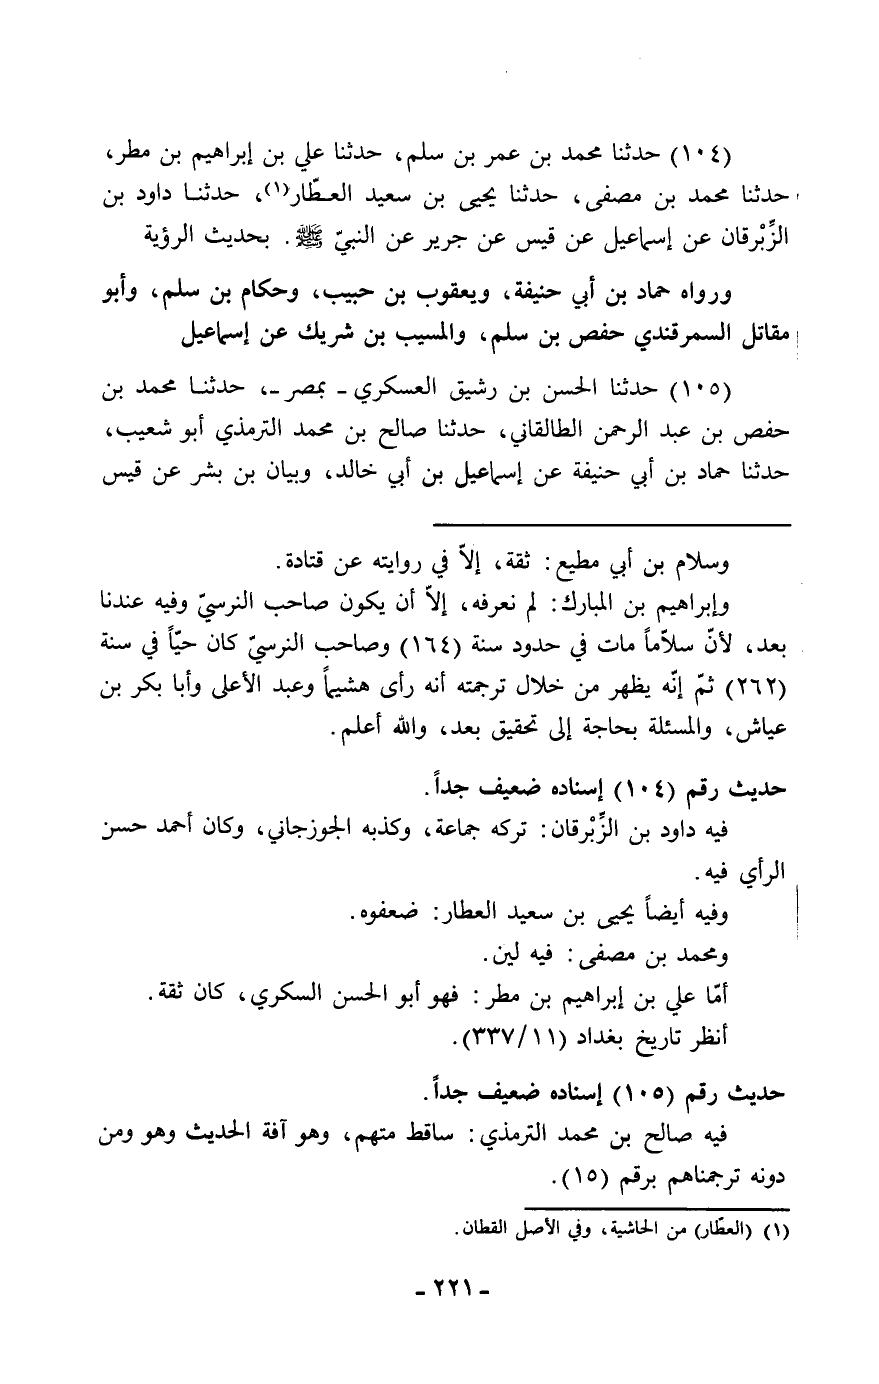 (١٠٤) حدثنا محمد بن عمر بن سلم، حدثنا علي بن إبراهيم بن مطر،
حدثنا محمد بن مصفى، حدثنا يحيى بن سعيد العطّار(١)، حدثنا داود بن
الزِّبْرقان عن إسماعيل عن قيس عن جرير عن النبيّ ﷺ. بحديث الرؤية
ورواه حماد بن أبي حنيفة، ويعقوب بن حبيب، وحكام بن سلم، وأبو
مقاتل السمرقندي حفص بن سلم، والمسيب بن شريك عن إسماعيل
(١٠٥) حدثنا الحسن بن رشيق العسكري - بمصر -، حدثنا محمد بن
حفص بن عبد الرحمن الطالقاني، حدثنا صالح بن محمد الترمذي أبو شعيب،
حدثنا حماد بن أبي حنيفة عن إسماعيل بن أبي خالد، وبيان بن بشر عن قيس
وسلام بن أبي مطيع: ثقة، إلاّ في روايته عن قتادة.
وإبراهيم بن المبارك: لم نعرفه، إلاّ أن يكون صاحب النرسيّ وفيه عندنا
بعد، لأنّ سلاّماً مات في حدود سنة (١٦٤) وصاحب النرسيّ كان حيّاً في سنة
(٢٦٢) ثمّ إنّه يظهر من خلال ترجمته أنه رأى هشيماً وعبد الأعلى وأبا بكر بن
عياش، والمسئلة بحاجة إلى تحقيق بعد، والله أعلم.
حديث رقم (١٠٤) إسناده ضعيف جداً.
فيه داود بن الزِّبْرقان: تركه جماعة، وكذبه الجوزجاني، وكان أحمد حسن
الرأي فيه.
وفيه أيضاً يحيى بن سعيد العطار: ضعفوه.
ومحمد بن مصفى: فيه لين.
أمّا علي بن إبراهيم بن مطر: فهو أبو الحسن السكري، كان ثقة.
أنظر تاريخ بغداد (١١/٣٣٧).
حديث رقم (١٠٥) إسناده ضعيف جداً.
فيه صالح بن محمد الترمذي: ساقط متهم، وهو آفة الحديث وهو ومن
دونه ترجمناهم برقم (١٥).
(١) (العطّار) من الحاشية، وفي الأصل القطان.
- ٢٢١ -